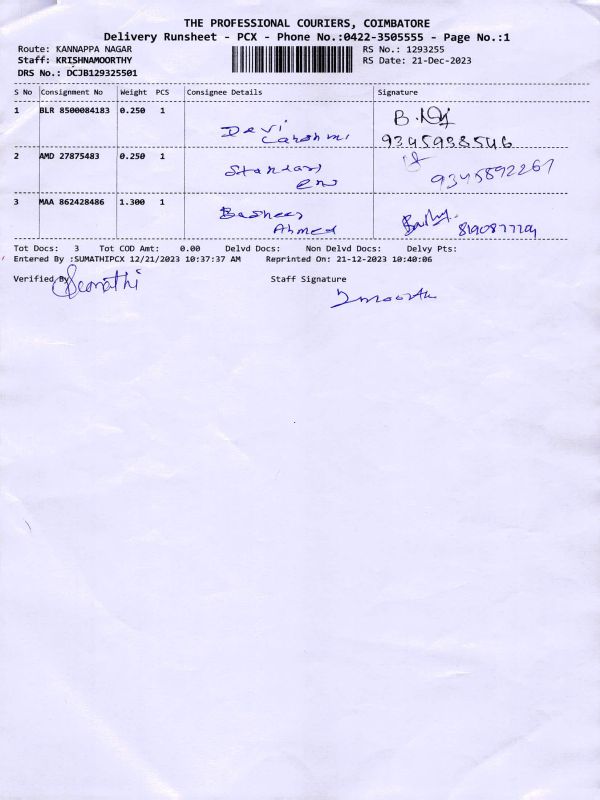 THE PROFESSIONAL COURIERS, COIMBATORE
Delivery Runsheet - PCX - Phone No.:0422-3505555 - Page No.:1
Route: KANNAPPA NAGAR RS No.: 1293255
Staff: KRISHNAMOORTHY RS Date: 21-Dec-2023
DRS No.: DCJB129325501
S No Consignment No Weight PCS Consignee Details Signature
1 BLR 8500084183 0.250 1
Devi
9345938546
2 AMD 27875483 0.250 1
9345892267
3 MAA 862428486 1.300 1
Basheer
Ahmed
Tot Docs: 3 Tot COD Amt: 0.00 Delvd Docs: Non Delvd Docs: Delvy Pts:
Entered By :SUMATHIPCX 12/21/2023 10:37:37 AM Reprinted On: 21-12-2023 10:40:06
Verified By Staff Signature